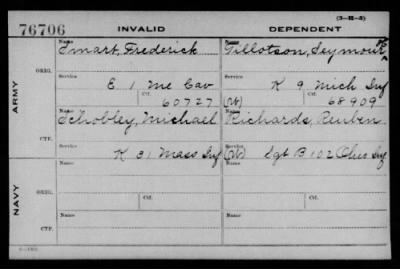 (3—111—3)
76706 INVALID DEPENDENT
Name Name
Emart, Frederick Tillotson, Seymour
ORIG. Service Service
E 1 Me Cav K 9 Mich Inf
Ctf. Ctf.
60727 (W) 68909
ARMY
Name Name
Schobley, Michael Richards, Reuben
CTF. Service Service
K 31 Mass Inf (W) Sgt B 102 Ohio Inf
NAVY
Name Ctf. Name Ctf.
ORIG.
Name Name
CTF.